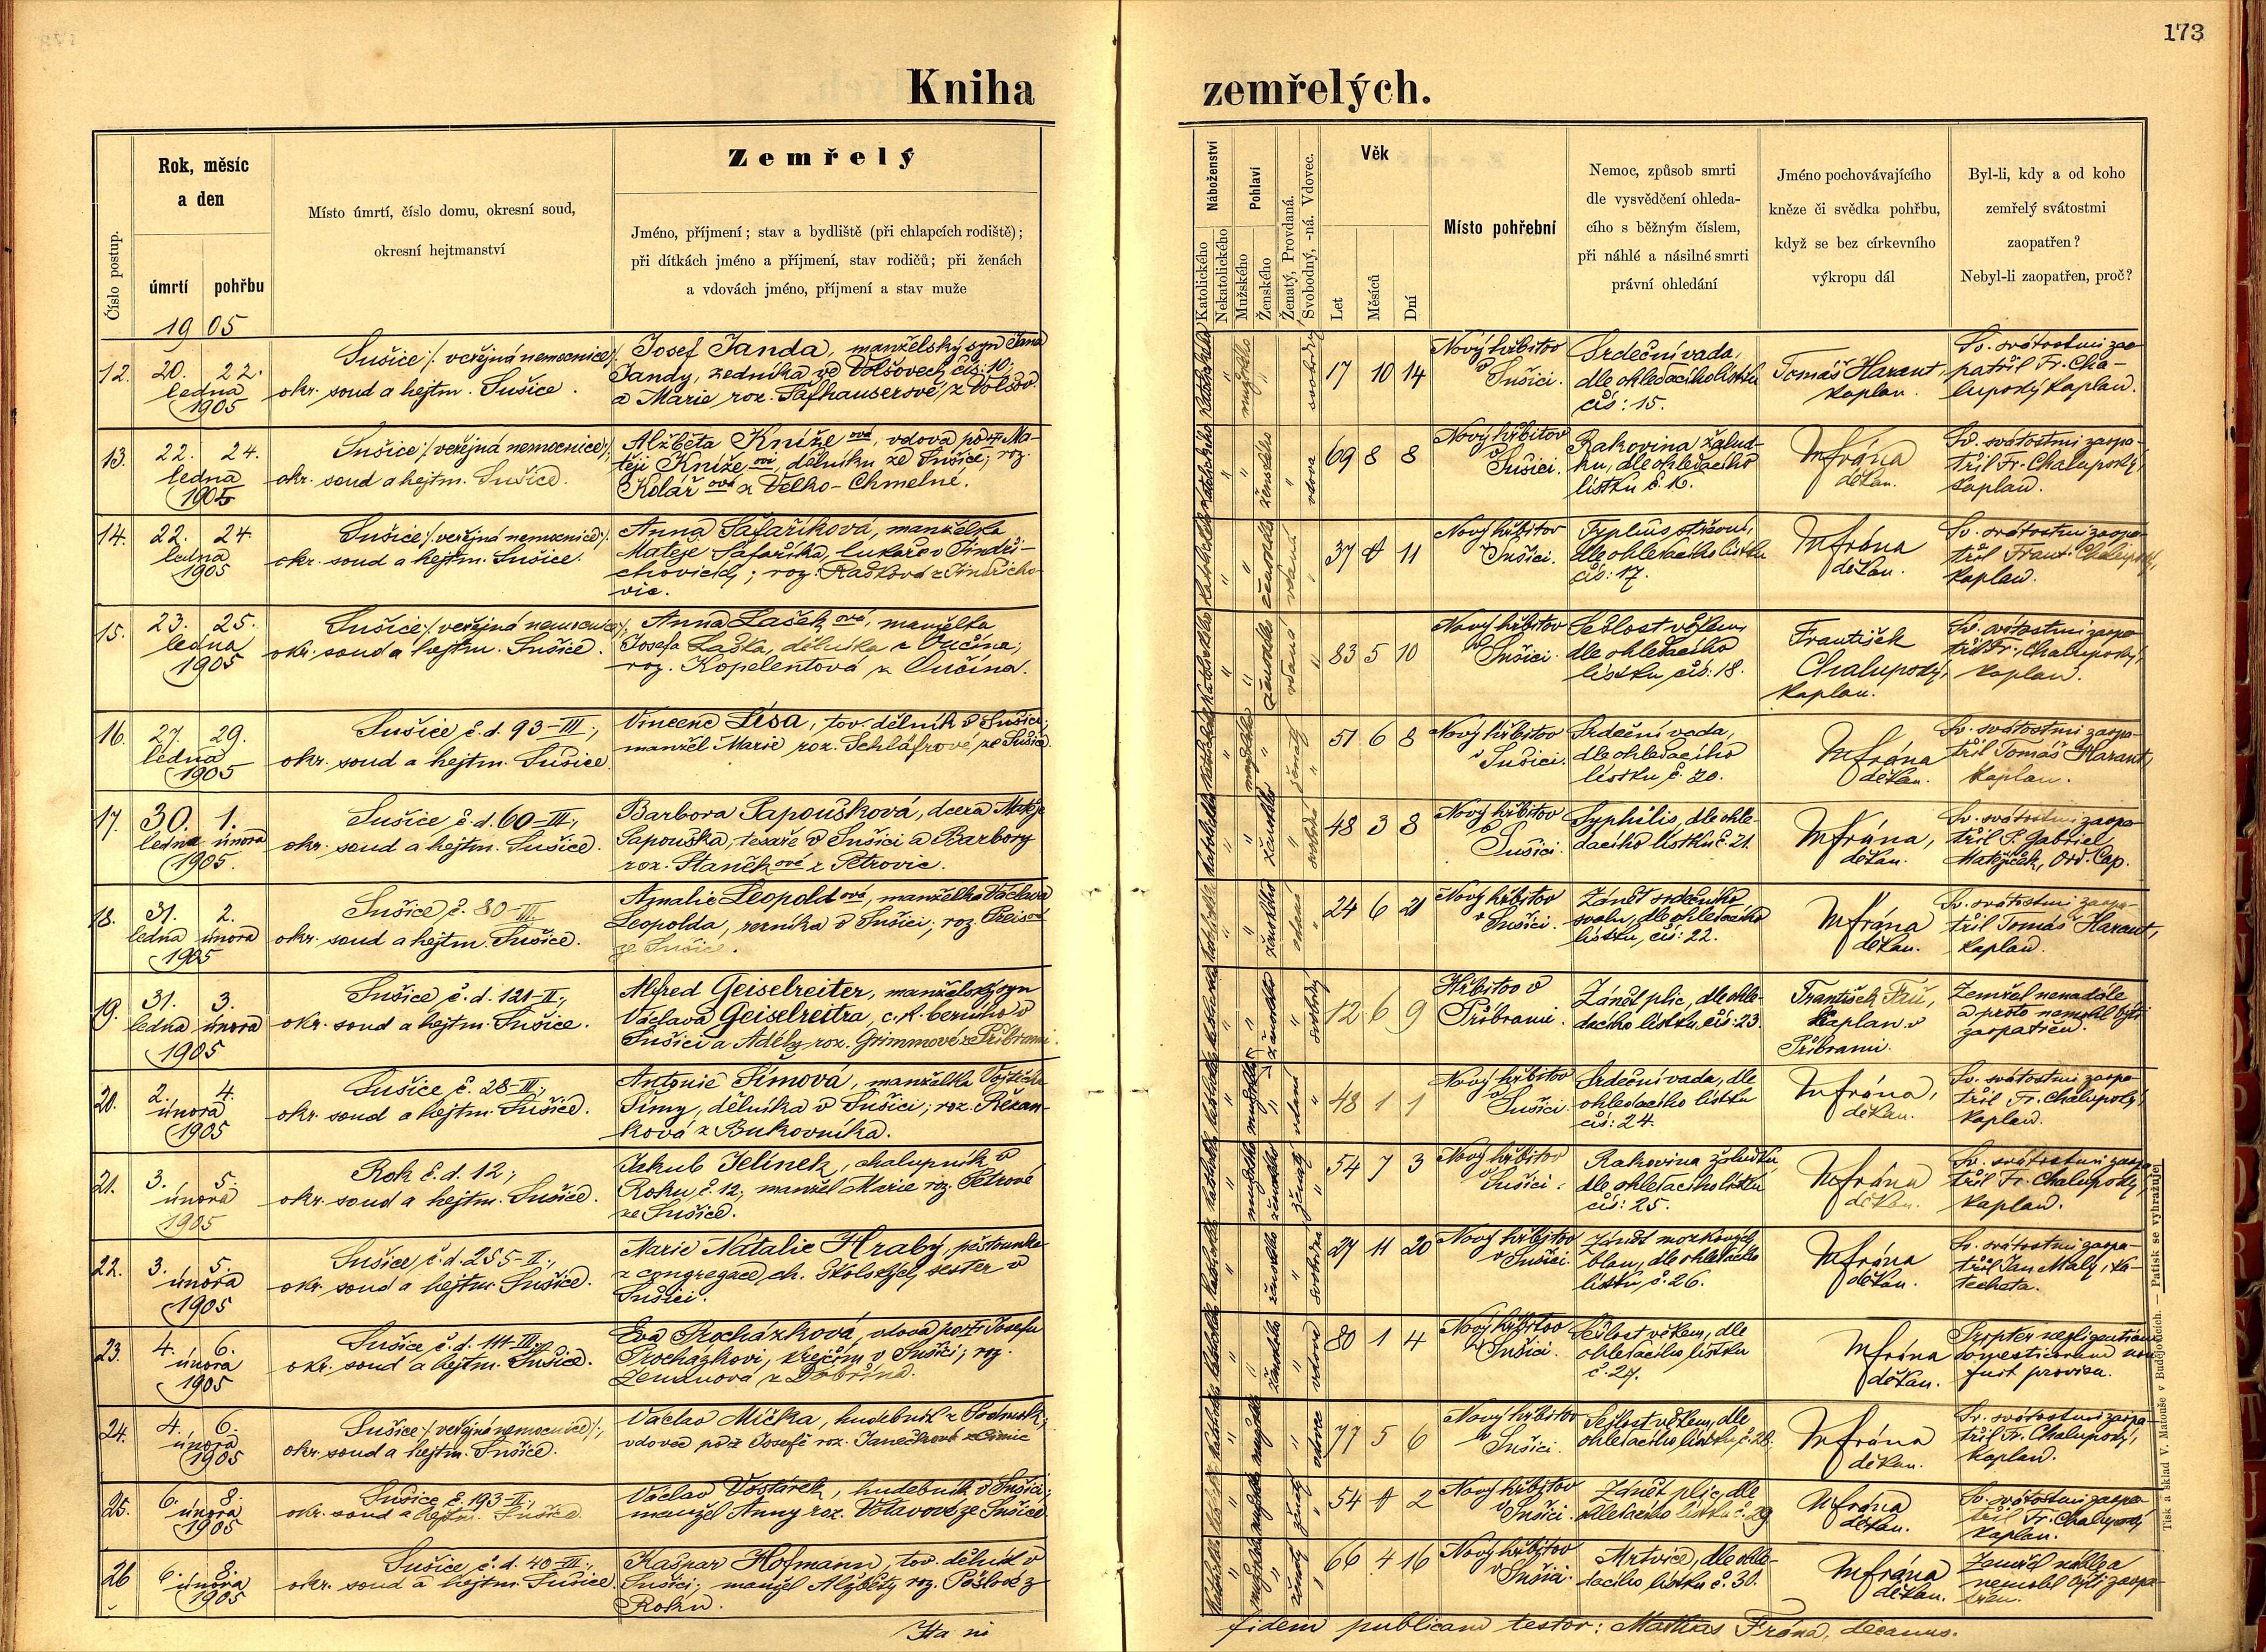 173
Kniha zemřelých.
Číslo postup.
Rok, měsíc
a den
úmrtí pohřbu
Místo úmrtí, číslo domu, okresní soud,
okresní hejtmanství
Zemřelý
Jméno, příjmení; stav a bydliště (při chlapcích rodiště);
při dítkách jméno a příjmení, stav rodičů; při ženách
a vdovách jméno, příjmení a stav muže
Náboženství
Katolického
Nekatolického
Pohlaví
Mužského
Ženského
Ženatý, Provdaná.
Svobodný, -ná. Vdovec.
Věk
Let
Měsíců
Dní
Místo pohřební
Nemoc, způsob smrti
dle vysvědčení ohleda-
cího s běžným číslem,
při náhlé a násilné smrti
právní ohledání
Jméno pochovávajícího
kněze či svědka pohřbu,
když se bez církevního
výkropu dál
Byl-li, kdy a od koho
zemřelý svátostmi
zaopatřen?
Nebyl-li zaopatřen, proč?
1905
12. 20. 22.
ledna
1905
Sušice /: veřejná nemocnice :/
okr. soud a hejtm. Sušice.
Josef Janda, manželský syn Jana
Jandy, zedníka ve Volšovech čís. 10,
a Marie roz. Šafhauserové z Volšov
katolického
mužského
svobodný
17 10 14
Nový hřbitov
v Sušici.
Srdeční vada,
dle ohledacího lístku
čís: 15.
Tomáš Harant,
kaplan.
Sv. svátostmi zao-
patřil Fr. Cha-
lupový kaplan.
13. 22. 24.
ledna
1905
Sušice /: veřejná nemocnice :/
okr. soud a hejtm. Sušice.
Alžběta Knížeová, vdova po Ma-
těji Knížeovi, dělníku ze Sušice; roz.
Kolářová z Velko-Chmelné.
katolického
ženského
vdova
69 8 8
Nový hřbitov
v Sušici.
Rakovina žalud-
ku, dle ohledacího
lístku č. 16.
MFrána
děkan.
Sv. svátostmi zaopa-
třil Fr. Chalupový,
kaplan.
14. 22. 24.
ledna
1905
Sušice /: veřejná nemocnice :/
okr. soud a hejtm. Sušice.
Anna Šafaříková, manželka
Matěje Šafaříka, lukaře v Jindři-
chovicích; roz. Rašková z Jindřicho-
vic.
37 0 11
Nový hřbitov
v Sušici.
Typhus střevní,
dle ohledacího lístku
čís: 17.
MFrána
děkan.
Sv. svátostmi zaopa-
třil Frant. Chalupový,
kaplan.
15. 23. 25.
ledna
1905
Sušice /: veřejná nemocnice :/
okr. soud a hejtm. Sušice.
Anna Lašková, manželka
Josefa Laška, dělníka z Vučína;
roz. Kopelentová z Lučína.
83 5 10
Nový hřbitov
v Sušici.
Sešlost věkem,
dle ohledacího
lístku čís: 18.
František
Chalupový,
kaplan.
Sv. svátostmi zaopa-
třil Fr. Chalupový,
kaplan.
16. 27. 29.
ledna
1905
Sušice č. d. 93-III.;
okr. soud a hejtm. Sušice.
Vincenc Lísa, tov. dělník v Sušici;
manžel Marie roz. Schláfrové ze Sušice.
51 6 8
Nový hřbitov
v Sušici.
Srdeční vada,
dle ohledacího
lístku č. 20.
MFrána
děkan.
Sv. svátostmi zaopa-
třil Tomáš Harant,
kaplan.
17. 30. 1.
ledna února
1905.
Sušice č. d. 60-III.;
okr. soud a hejtm. Sušice.
Barbora Papoušková, dcera Matěje
Papouška, tesaře v Sušici a Barbory
roz. Staňkové z Petrovic.
48 3 8
Nový hřbitov
v Sušici.
Syphilis, dle ohle-
dacího lístku č. 21.
MFrána,
děkan.
Sv. svátostmi zaopa-
třil P. Gabriel
Matějíček, Ord. Cap.
18. 31. 2.
ledna února
1905
Sušice č. 80-III.
okr. soud a hejtm. Sušice.
Amalie Leopoldová, manželka Václava
Leopolda, řezníka v Sušici; roz. Preisová
ze Sušice.
24 6 21
Nový hřbitov
v Sušici.
Zánět srdečního
svalu, dle ohledacího
lístku, čís: 22.
MFrána
děkan.
Sv. svátostmi zaopa-
třil Tomáš Harant,
kaplan.
19. 31. 3.
ledna února
1905
Sušice č. d. 121-II.;
okr. soud a hejtm. Sušice.
Alfred Geiselreiter, manželský syn
Václava Geiselreitra, c. k. berního v
Sušici a Adély roz. Grimmové z Příbrami.
12 6 9
Hřbitov v
Příbrami.
Zánět plic, dle ohle-
dacího lístku, čís: 23.
František
kaplan v
Příbrami.
Zemřel nenadále
a proto nemohl býti
zaopatřen.
20. 2. 4.
února
1905
Sušice č. 28-III.;
okr. soud a hejtm. Sušice.
Antonie Šímová, manželka Vojtěcha
Šímy, dělníka v Sušici; roz. Řezan-
ková z Bukovníka.
48 1 1
Nový hřbitov
v Sušici.
Srdeční vada, dle
ohledacího lístku
čís: 24.
MFrána,
děkan.
Sv. svátostmi zaopa-
třil Fr. Chalupový,
kaplan.
21. 3. 5.
února
1905
Rok č. d. 12;
okr. soud a hejtm. Sušice.
Jakub Jelínek, chalupník v
Roku č. 12, manžel Marie roz. Petrové
ze Sušice.
54 7 3
Nový hřbitov
v Sušici.
Rakovina žaludku
dle ohledacího lístku
čís: 25.
MFrána
děkan.
Sv. svátostmi zaopa-
třil Fr. Chalupový,
kaplan.
22. 3. 5.
února
1905
Sušice č. d. 255-II.;
okr. soud a hejtm. Sušice.
Marie Natalie Hrabý, pěstounka
z congregace ch. školských sester v
Sušici.
27 11 20
Nový hřbitov
v Sušici.
Zánět mozkových
blan, dle ohledacího
lístku, č. 26.
MFrána
děkan.
Sv. svátostmi zaopa-
třil Jan Malý, ka-
techeta.
23. 4. 6.
února
1905
Sušice č. d. 111-III.;
okr. soud a hejtm. Sušice.
Eva Procházková, vdova po Josefu
Procházkovi, krejčím v Sušici; roz.
Zemanová z Dobršína.
80 1 4
Nový hřbitov
v Sušici.
Sešlost věkem, dle
ohledacího lístku
č. 27.
MFrána
děkan.
Propter negligentiam
domesticorum non
fuit provisa.
24. 4. 6.
února
1905
Sušice /: veřejná nemocnice :/;
okr. soud a hejtm. Sušice.
Václav Míčka, hudebník z
vdovec po Josefě roz. Janečkové
77 5 6
Nový hřbitov
v Sušici.
Sešlost věkem, dle
ohledacího lístku č. 28.
MFrána
děkan.
Sv. svátostmi zaopa-
třil Fr. Chalupový,
kaplan.
25. 6. 8.
února
1905
Sušice č. 193-II.;
okr. soud a hejtm. Sušice.
Václav Vostárek, hudebník v Sušici;
manžel Anny roz. Votavové ze Sušice.
54 0 2
Nový hřbitov
v Sušici.
Zánět plic, dle
ohledacího lístku č. 29
MFrána
děkan.
Sv. svátostmi zaopa-
třil Fr. Chalupový
kaplan.
26 6. 8.
února
1905
Sušice č. d. 40-III.;
okr. soud a hejtm. Sušice.
Kašpar Hofmann, tov. dělník v
Sušici; manžel Alžběty roz. Pöslové z
Roku.
66 4 16
Nový hřbitov
v Sušici.
Mrtvice, dle ohle-
dacího lístku č. 30.
MFrána
děkan.
Zemřel náhle a
nemohl býti zaopa-
třen.
Ita in
fidem publicam testor: Mathias Frána, decanus.
Tisk a sklad V. Matouše v Budějovicích. — Patisk se vyhražuje.